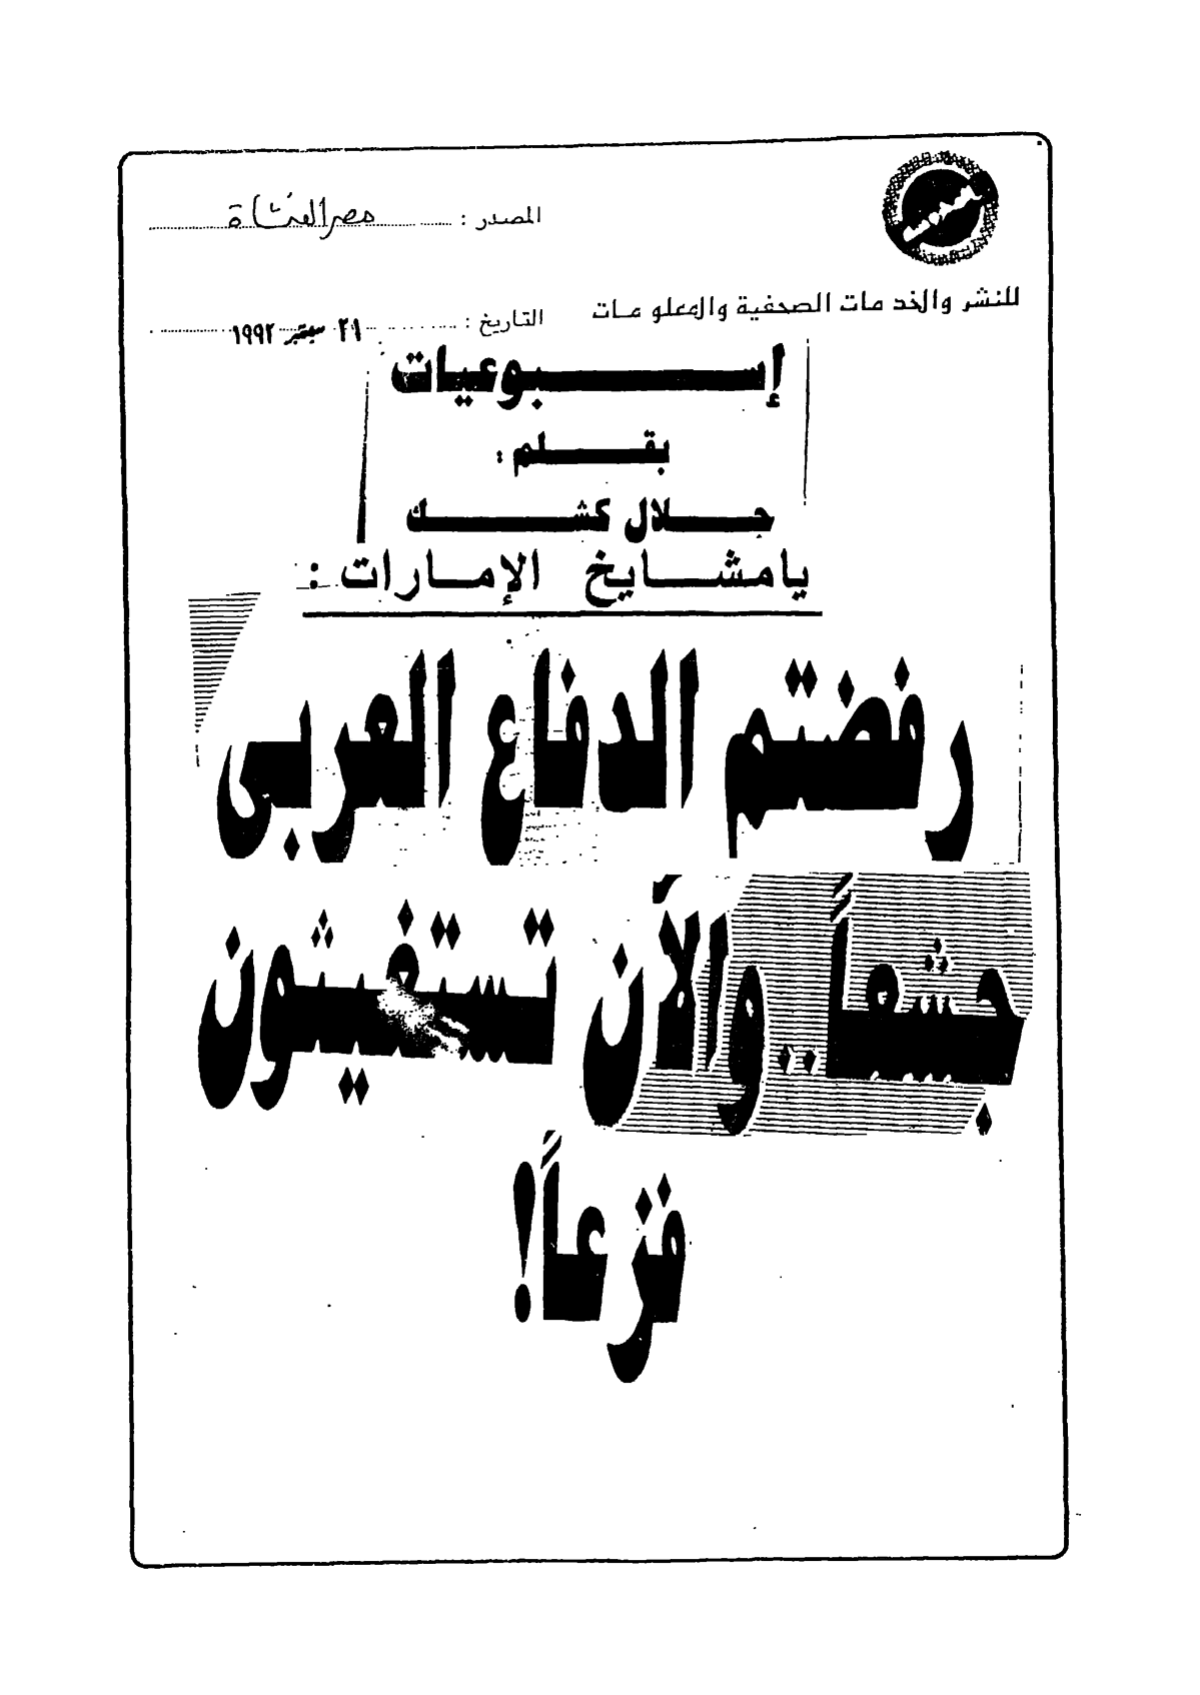 المصدر : مصر الفتاة
للنشر والخدمات الصحفية والمعلومات
التاريخ : ٢١ سبتمبر ١٩٩٢
إسبوعيات
بقلم :
جلال كشك
يامشايخ الإمارات :
رفضتم الدفاع العربى
جشعاً .. والآن تستغيثون
فزعاً!